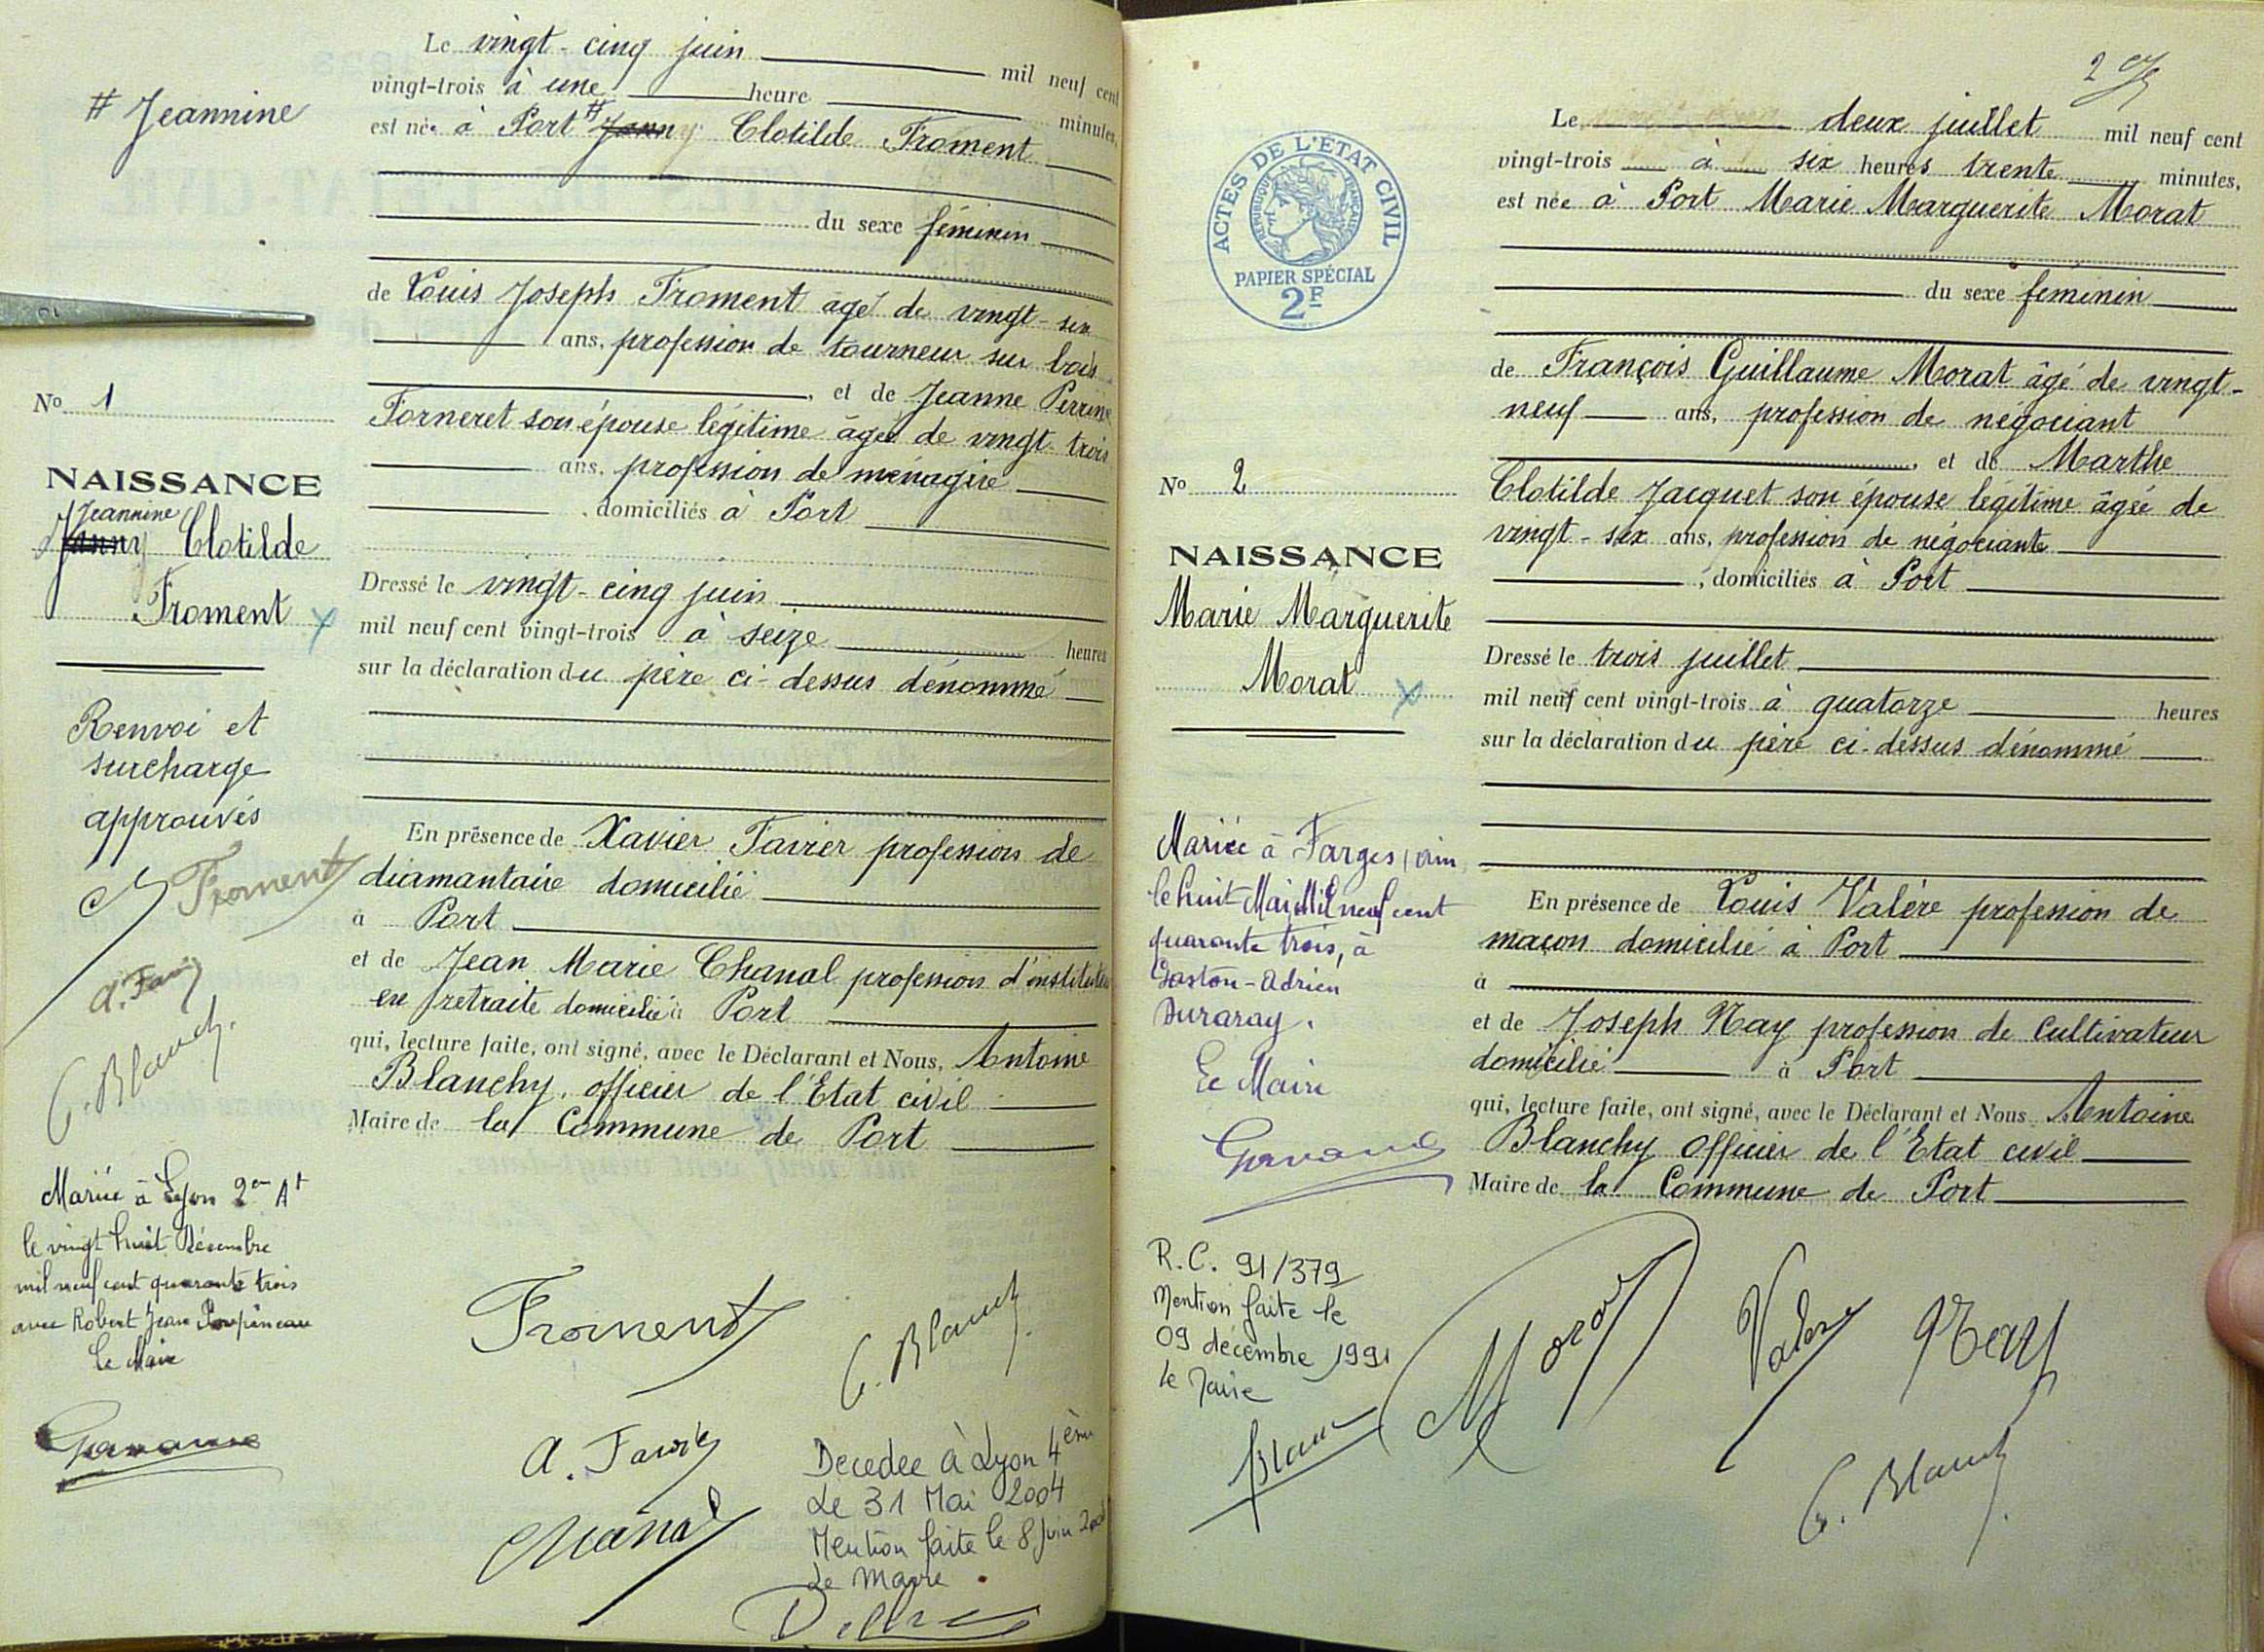 # Jeannine
Le vingt-cinq juin mil neuf cent
vingt-trois à une heure minutes,
est née à Port # Janny Clotilde Froment
du sexe féminin
de Louis Joseph Froment âgé de vingt-six
ans, profession de tourneur sur bois
, et de Jeanne Perrine
Forneret son épouse légitime âgée de vingt-trois
ans, profession de ménagère
domiciliés à Port
Dressé le vingt-cinq juin
mil neuf cent vingt-trois à seize heures
sur la déclaration du père ci-dessus dénommé
En présence de Xavier Favier profession de
diamantaire domicilié
à Port
et de Jean Marie Chanal profession d'instituteur
en retraite domicilié à Port
qui, lecture faite, ont signé, avec le Déclarant et Nous, Antoine
Blanchy, officier de l'Etat civil
Maire de la Commune de Port
No 1
NAISSANCE
Jeannine
Janny Clotilde
Froment
Renvoi et
surcharge
approuvés
Froment
A. Favier
Mariée à Lyon 2em At
le vingt huit Décembre
mil neuf cent quarante trois
avec Robert Jean Poupineau
Le Maire
Froment
A. Favier
Chanal
Decedee à Lyon 4ème
Le 31 Mai 2004
Mention faite le 8 Juin 2004
Le Maire
2
ACTES DE L'ETAT CIVIL
REPUBLIQUE FRANÇAISE
PAPIER SPÉCIAL
2F
Le deux juillet mil neuf cent
vingt-trois à six heures trente minutes,
est née à Port Marie Marguerite Morat
du sexe féminin
de François Guillaume Morat âgé de vingt-
neuf ans, profession de négociant
, et de Marthe
Clotilde Jacquet son épouse légitime âgée de
vingt-six ans, profession de négociante
, domiciliés à Port
Dressé le trois juillet
mil neuf cent vingt-trois à quatorze heures
sur la déclaration du père ci-dessus dénommé
En présence de Louis Valère profession de
maçon domicilié à Port
à
et de Joseph Nay profession de cultivateur
domicilié à Port
qui, lecture faite, ont signé, avec le Déclarant et Nous, Antoine
Blanchy officier de l'Etat civil
Maire de la Commune de Port
No 2
NAISSANCE
Marie Marguerite
Morat
Mariée à Farges, Ain
le huit Mai Mil neuf cent
quarante trois, à
Gaston-Adrien
Duraray.
Le Maire
R.C. 91/379
Mention faite le
09 décembre 1991
le Maire
Morat
Valère